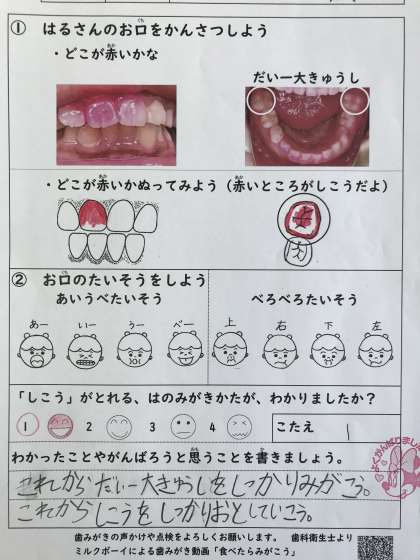 ① はるさんのお口をかんさつしよう
・どこが赤いかな
だい一大きゅうし
・どこが赤いかぬってみよう（赤いところがしこうだよ）
② お口のたいそうをしよう
あいうべたいそう
べろべろたいそう
あー いー うー べー 上 右 下 左
「しこう」がとれる、はのみがきかたが、わかりましたか？
1 2 3 4 こたえ 1
わかったことやがんばろうと思うことを書きましょう。
これからだい一大きゅうしをしっかりみがこう。
これからしこうをしっかりおとしていこう。
歯みがきの声かけや点検をよろしくお願いします。 歯科衛生士より
ミルクボーイによる歯みがき動画「食べたらみがこう」